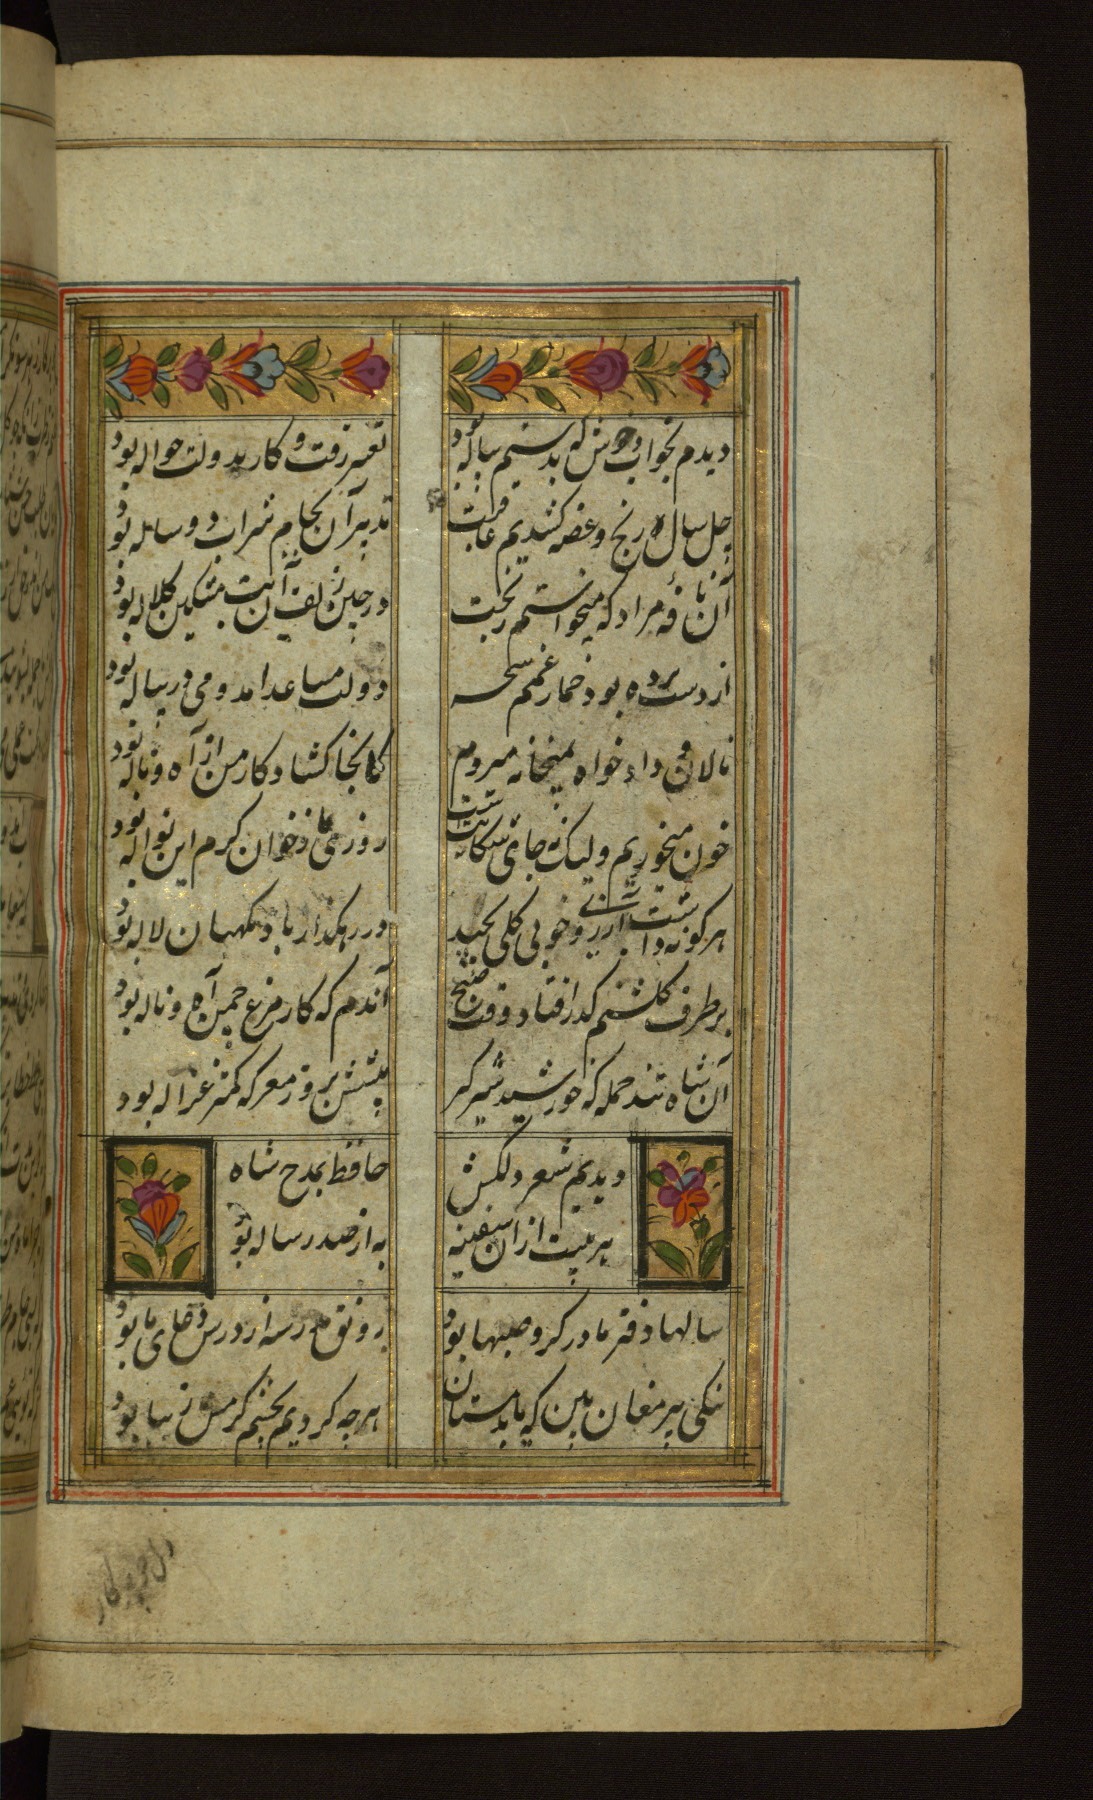 دیدم بخواب خوش که بدستم پیاله بود
تعبیر رفت و کار بدولت حواله بود
چل سال رنج و غصه کشدیم عاقبت
تدبیر آن بجام شراب دو ساله بود
آن نافه مراد که میخواستم ز بخت
در چین زلف آن بت مشکین کلاله بود
از دست برده بود خمار غمم سحر
دولت مساعد امد و می در پیاله بود
نالان و داد خواه بمیخانه میروم
کانجا کشاد کار من از آه و ناله بود
خون میخوریم ولیک نه جای شکایت است
روزی ما ز خوان کرم این نواله بود
هر کو نه داشت و خوبی کلی نچید
در رهکذار باد نکهبان لاله بود
بر طرف کلشنم کذر افتاد وقت صبح
آندم که کار مرغ چمن آه و ناله بود
آن شاه تند حمله که خورشید شیر کیر
پیشش بروز معرکه کمتر غزاله بود
دیدیم شعر دلکش
حافظ بمدح شاه
هر بیت از ان سفینه
به از صد رساله بود
سالها دفتر ما در کرو صهبا بود
رونق مدرسه از درس و دعای ما بود
نیکی پیر مغان بین که چو ما بدمستان
هر چه کردیم بچشم کرمش زیبا بود